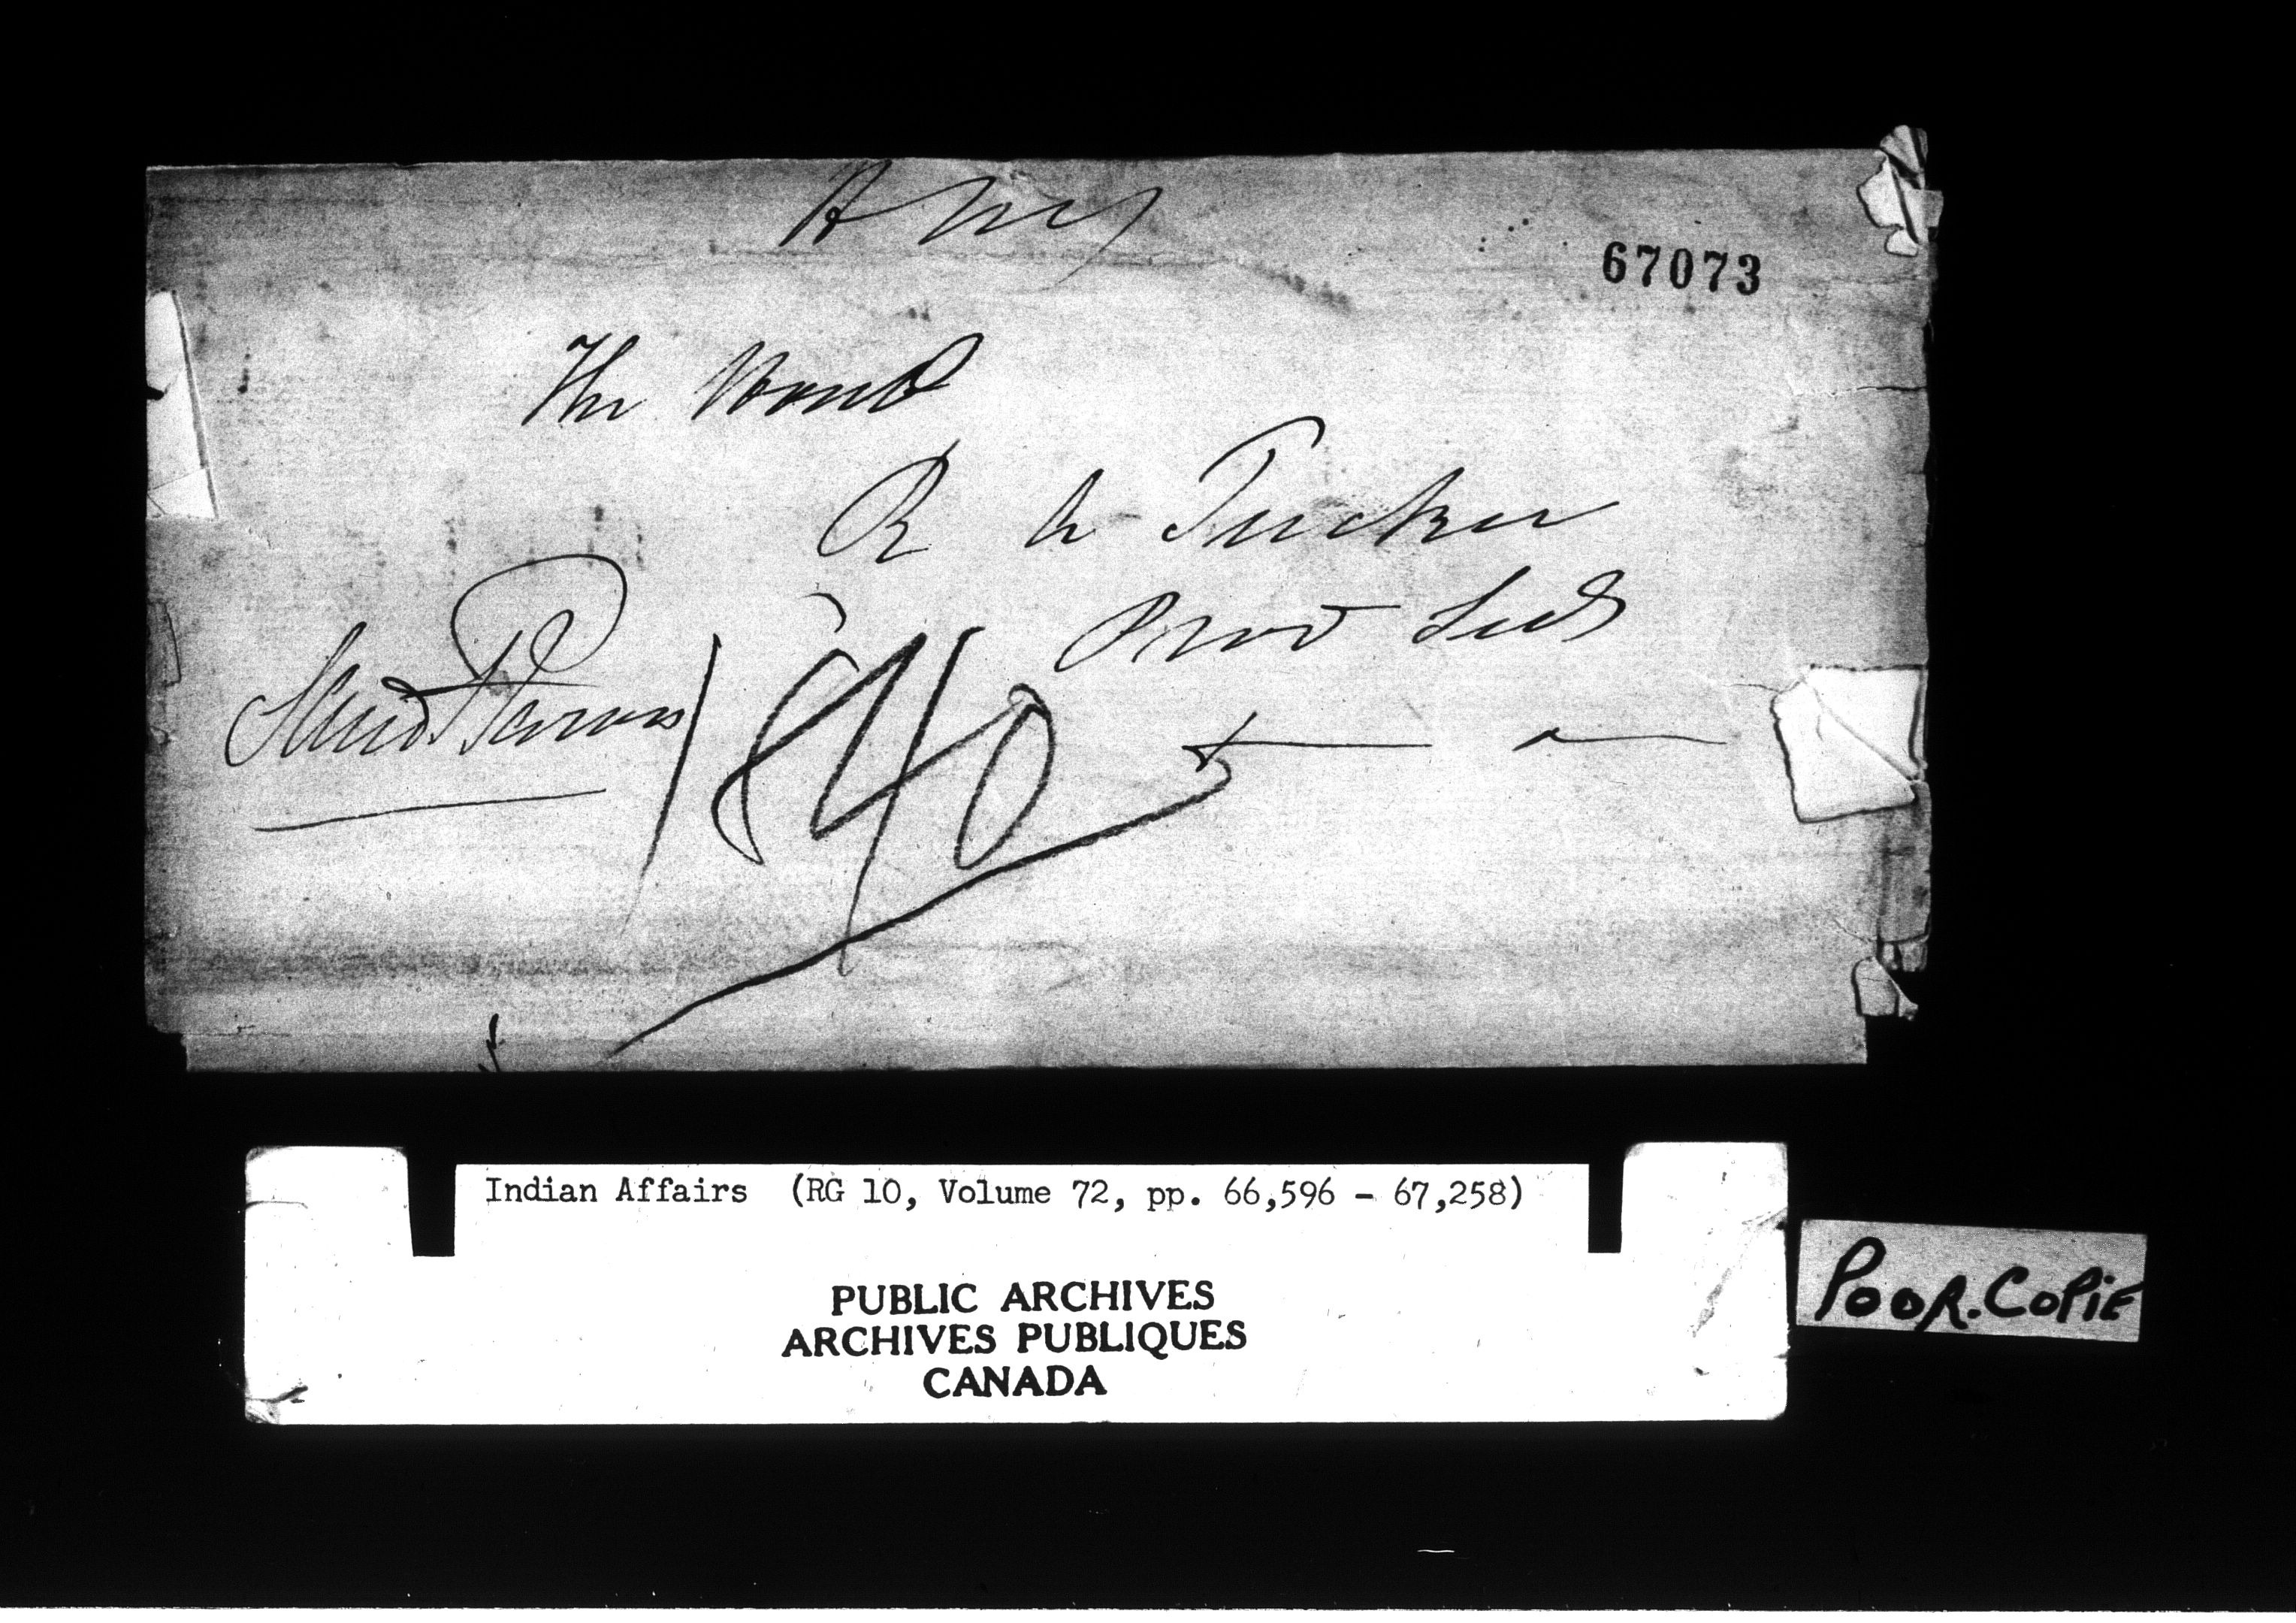 67073
The Honb
R A Tucker
Prov Sec
1840
Indian Affairs (RG 10, Volume 72, pp. 66,596 - 67,258)
PUBLIC ARCHIVES
ARCHIVES PUBLIQUES
CANADA
POOR. COPIE